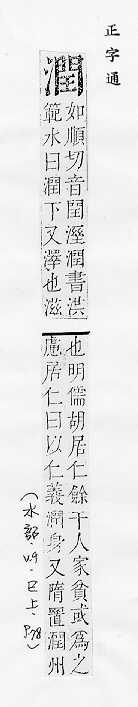 正字通
潤
如順切音閏溼潤書洪
範水曰潤下又澤也滋
也明儒胡居仁餘干人家貧或為之
慮居仁曰以仁義潤身又隋置潤州
(水部.v.9.巳上.p.78)